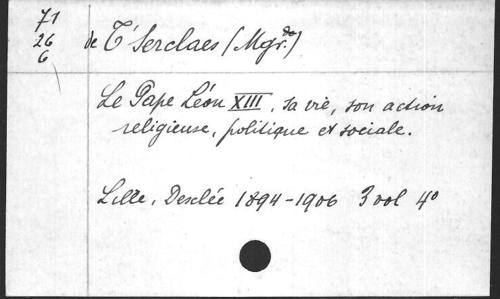 71
26
6
de T'Serclaes (Mgr. de)
Le Pape Léon XIII, sa vie, son action
religieuse, politique et sociale.
Lille, Desclée 1894-1906 3 vol 4º